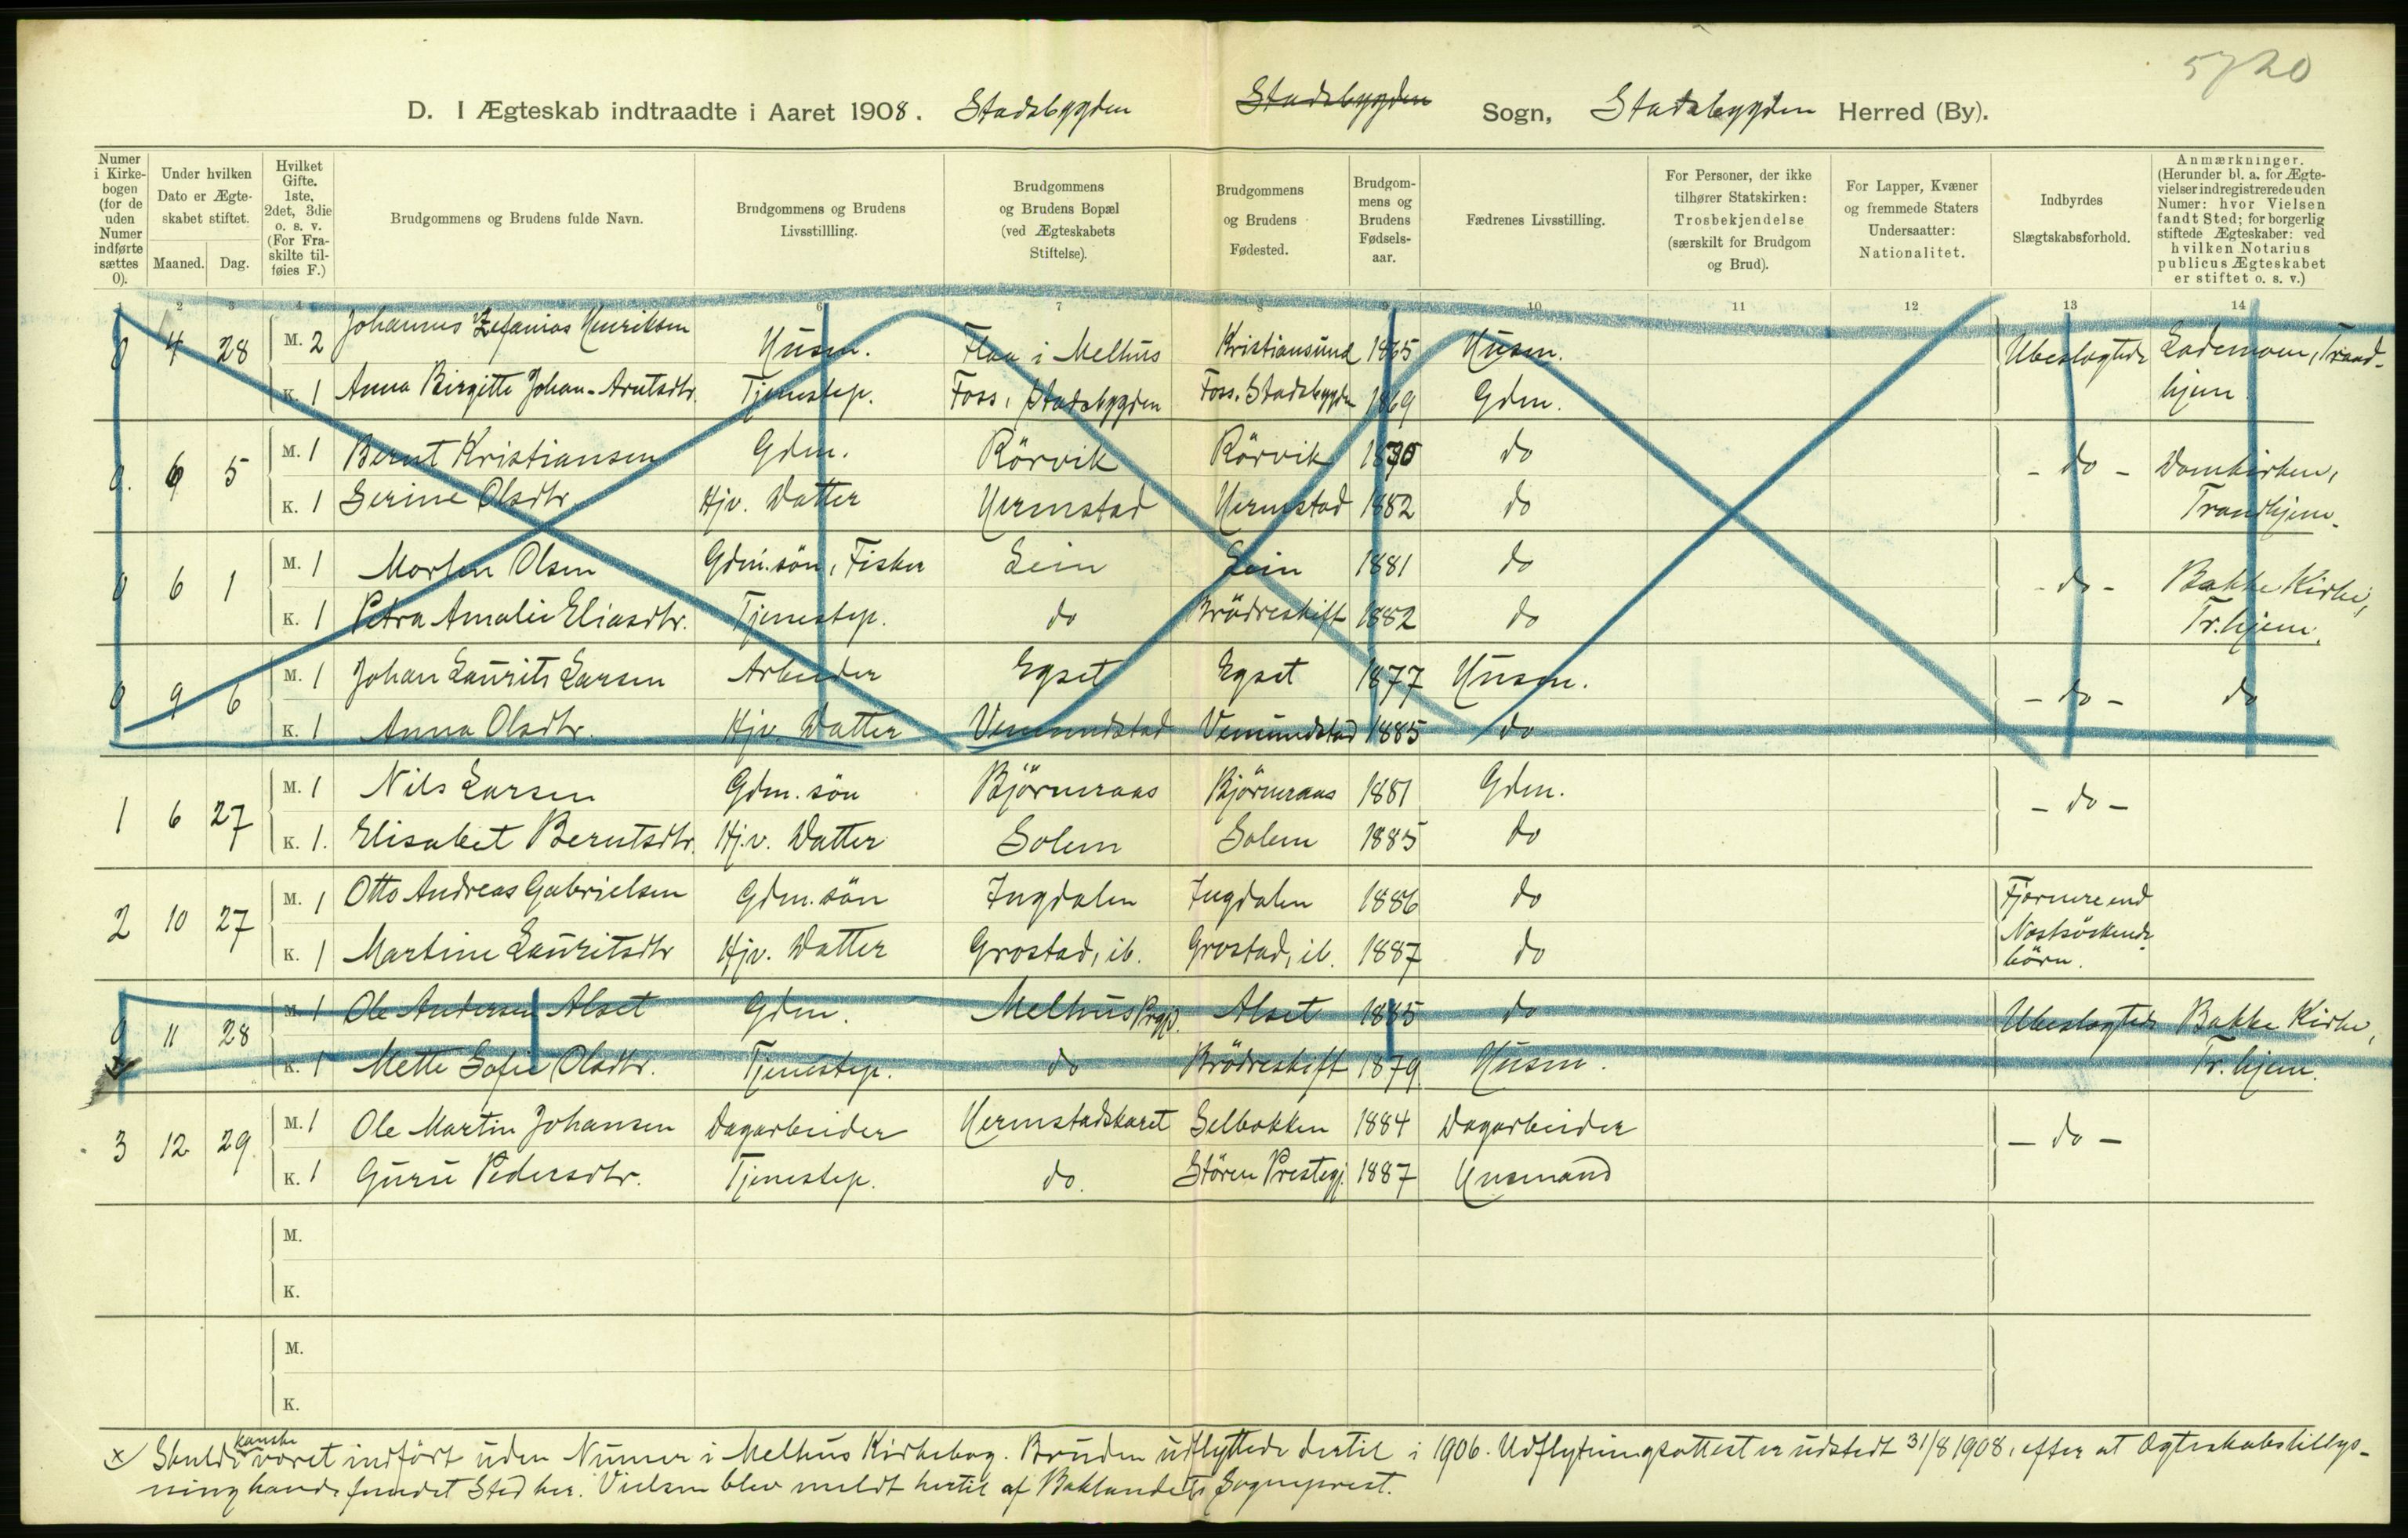 5720
D. I Ægteskab indtraadte i Aaret 1908. Stadsbygden Stadsbygden Sogn, Stadsbygden Herred (By).
Numer i Kirkebogen (for de uden Numer indførte sættes 0).
Under hvilken Dato er Ægteskabet stiftet.
Maaned. Dag.
Hvilket Gifte. 1ste, 2det, 3die o. s. v. (For Fraskilte tilføies F.)
Brudgommens og Brudens fulde Navn.
Brudgommens og Brudens Livsstillling.
Brudgommens og Brudens Bopæl (ved Ægteskabets Stiftelse).
Brudgommens og Brudens Fødested.
Brudgommens og Brudens Fødselsaar.
Fædrenes Livsstilling.
For Personer, der ikke tilhører Statskirken: Trosbekjendelse (særskilt for Brudgom og Brud).
For Lapper, Kvæner og fremmede Staters Undersaatter: Nationalitet.
Indbyrdes Slægtskabsforhold.
Anmærkninger. (Herunder bl. a. for Ægtevielser indregistrerede uden Numer: hvor Vielsen fandt Sted; for borgerlig stiftede Ægteskaber: ved hvilken Notarius publicus Ægteskabet er stiftet o. s. v.)
1 2 3 4 6 7 8 9 10 11 12 13 14
0 4 28 M. 2 Johannes Zefanias Henriksen Husm. Flaa i Melhus Kristiansund 1865 Husm. Ubeslægtede Lademoen, Trond-
K. 1 Anna Birgitte Johan-Arntsdtr. Tjenestep. Foss, Stadsbygden Foss, Stadsbygden 1869 Gdm. hjem
0. 6 5 M. 1 Bernt Kristiansen Gdm. Rörvik Rörvik do - do - Domkirken,
K. 1 Serine Olsdtr Hjv. Datter Hermstad Hermstad 1882 do Trondhjem.
0 6 1 M. 1 Morten Olsen Gdm. sön, Fisker Lein Lein 1881 do - do - Bakke Kirke,
K. 1 Petra Amalie Eliasdtr. Tjenestep. do Brödreskift 1882 do Tr.hjem.
0 9 6 M. 1 Johan Laurits Larsen Arbeider Egset Egset 1877 Husm. - do - do
K. 1 Anna Olsdtr. Hjv. Datter Vemundstad Vemundstad 1885 do
1 6 27 M. 1 Nils Larsen Gdm. sön Björneraas Björneraas 1881 Gdm. - do -
K. 1. Elisabet Berntsdtr. Hjv. Datter Solem Solem 1885 do
2 10 27 M. 1 Otto Andreas Gabrielsen Gdm. sön Ingdalen Ingdalen 1886 do Fjernere end
K. 1 Martine Lauritsdtr Hjv. Datter Grostad, ib. Grostad, ib. 1887 do Næstsöskende
börn.
0 11 28 M. 1 Ole Andersen Alset Gdm. Melhus Prgj. Alset 1885 do Ubeslægtede Bakke Kirke,
x K. 1 Mette Sofie Olsdtr. Tjenestep. do Brödreskift 1879 Husm. Tr.hjem.
3 12 29 M. 1 Ole Martin Johansen Dagarbeider Hermstadskaret Selbakken 1884 Dagarbeider - do -
K. 1 Guru Pedersdtr. Tjenestep. do. Stören Prestegj. 1887 Husmand
M.
K.
M.
K.
x/ Skulde kanske været indfört uden Numer i Melhus Kirkebog. Bruden udflyttede dertil i 1906. Udflytningsattest er udstedt 31/8 1908, efter at Ægteskabslillys-
ning havde fundet Sted her. Vielsen blev meldt hertil af Baklandets Sogneprest.